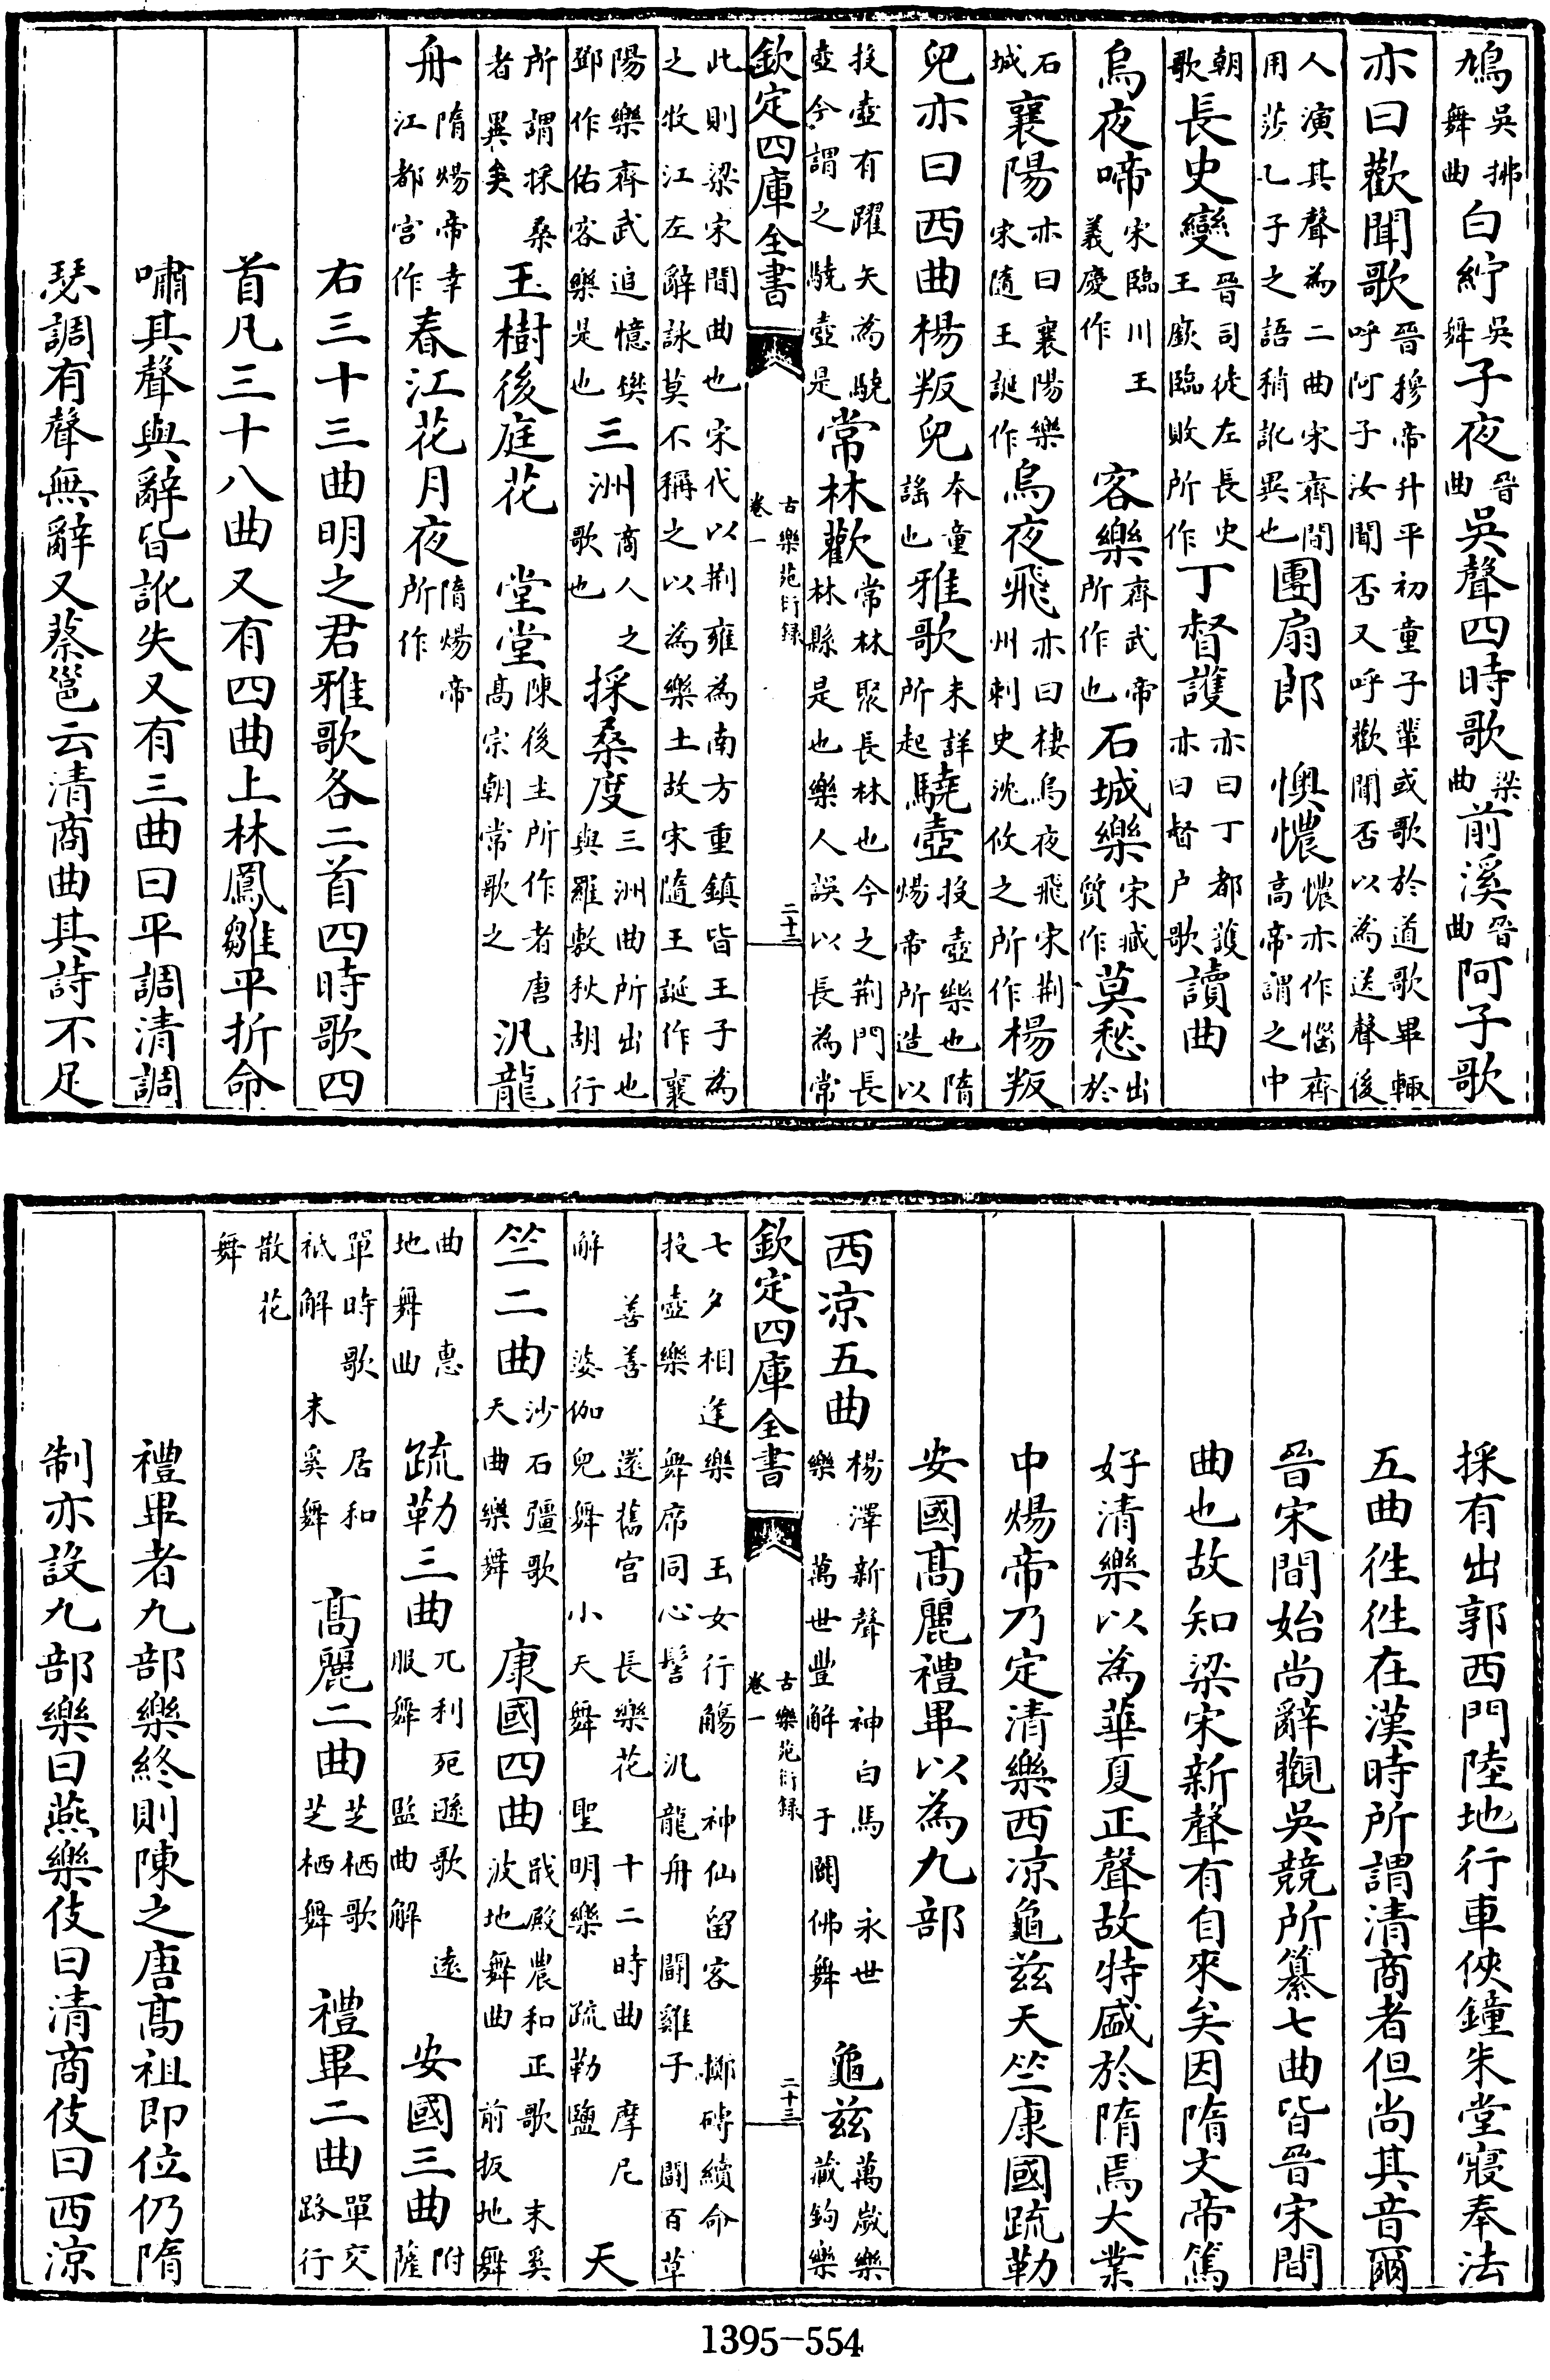 鳩吳拂舞曲白紵吳舞子夜晉曲吳聲四時歌梁曲前溪晉曲阿子歌
亦曰歡聞歌晉穆帝升平初童子輩或歌於道歌畢輙呼阿子汝聞否又呼歡聞否以為送聲後
人演其聲為二曲宋齊間用莎乚子之語稍訛異也團扇郎懊憹憹亦作惱齊高帝謂之中
朝歌長史變晉司徒左長史王廞臨敗所作丁督護亦曰丁都護亦曰督户歌讀曲
烏夜啼宋臨川王義慶作客樂齊武帝所作也石城樂宋臧質作莫愁出於
石城襄陽亦曰襄陽樂宋隨王誕作烏夜飛亦曰棲烏夜飛宋荆州刺史沈攸之所作楊叛
兒亦曰西曲楊叛兒本童謠也雅歌未詳所起驍壺投壺樂也隋煬帝所造以
投壺有躍矢為驍壺今謂之驍壺是常林歡常林聚長林也今之荆門長林縣是也樂人誤以長為常
欽定四庫全書 古樂苑衍録 卷一 二十二
此則梁宋間曲也宋代以荆雍為南方重鎮皆王子為之牧江左辭詠莫不稱之以為樂土故宋隨王誕作襄
陽樂齊武追憶樊鄧作估客樂是也三洲商人之歌也採桑度三洲曲所出也與羅敷秋胡行
所謂採桑者異矣玉樹後庭花堂堂陳後主所作者唐高宗朝常歌之汎龍
舟隋煬帝幸江都宫作春江花月夜隋煬帝所作
右三十三曲明之君雅歌各二首四時歌四
首凡三十八曲又有四曲上林鳳雛平折命
嘯其聲與辭皆訛失又有三曲曰平調清調
瑟調有聲無辭又蔡邕云清商曲其詩不足
採有出郭西門陸地行車俠鐘朱堂寢奉法
五曲徃徃在漢時所謂清商者但尚其音爾
晉宋間始尚辭觀吳競所纂七曲皆晉宋間
曲也故知梁宋新聲有自來矣因隋文帝篤
好清樂以為華夏正聲故特盛於隋焉大業
中煬帝乃定清樂西凉龜兹天竺康國疏勒
安國髙麗禮畢以為九部
西凉五曲楊澤新聲 神白馬 永世樂 萬世豐解 于闐佛舞 龜兹萬歲樂 藏鉤樂
欽定四庫全書 古樂苑衍録 卷一 二十三
七夕相逢樂 玉女行觴 神仙留客 擲磚續命 投壺樂 舞席同心髻 汎龍舟 闘雞子 闘百草
善善 還舊宫 長樂花 十二時曲 摩尼解 婆伽兒舞 小天舞 聖明樂 疏勒鹽 天
竺二曲沙石彊歌 天曲樂舞 康國四曲戢殿農和正歌 末奚波地舞曲 前拔地舞
曲 惠地舞曲 疏勒三曲兀利死遜歌 遠服舞 監曲解 安國三曲附薩
單時歌 居和祇解 末奚舞 髙麗二曲芝栖歌 芝栖舞 禮畢二曲單交路行
散花舞
禮畢者九部樂終則陳之唐髙祖即位仍隋
制亦設九部樂曰燕樂伎曰清商伎曰西凉
1395-554